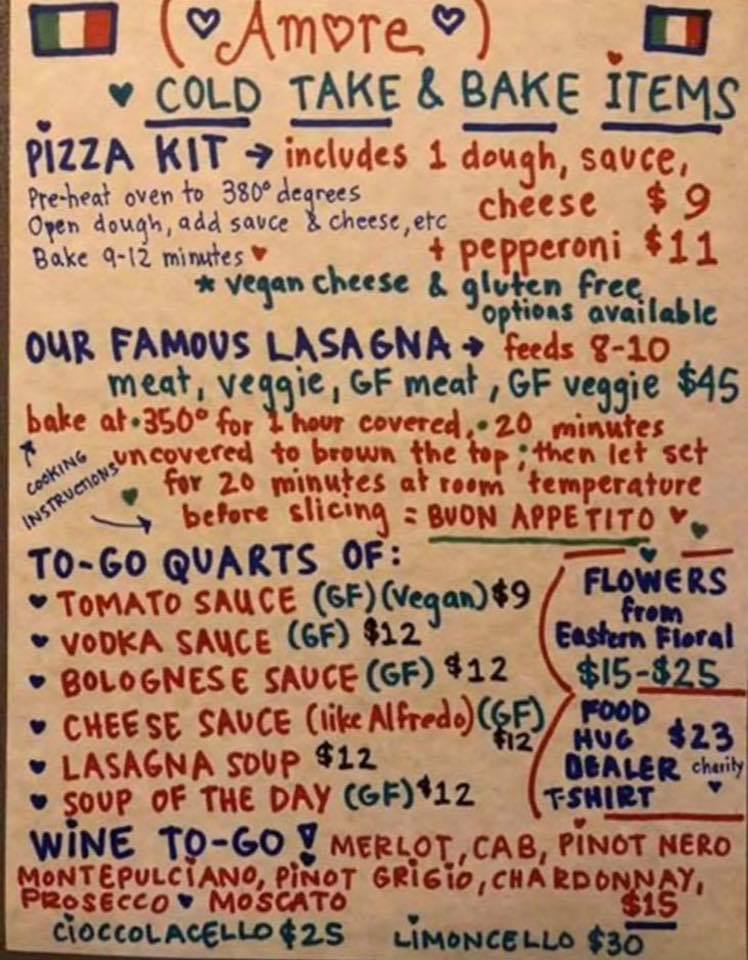 (♡ Amore ♡)
♥ COLD TAKE & BAKE ITEMS
PIZZA KIT → includes 1 dough, sauce,
Pre-heat oven to 380° degrees
cheese $9
Open dough, add sauce & cheese, etc
Bake 9-12 minutes ♥
+ pepperoni $11
* vegan cheese & gluten free
options available
OUR FAMOUS LASAGNA → feeds 8-10
meat, veggie, GF meat, GF veggie $45
bake at • 350° for 1 hour covered, • 20 minutes
uncovered to brown the top; then let set
for 20 minutes at room temperature
before slicing = BUON APPETITO ♥
COOKING
INSTRUCTIONS
TO-GO QUARTS OF:
♥ TOMATO SAUCE (GF) (Vegan) $9
♥ VODKA SAUCE (GF) $12
♥ BOLOGNESE SAUCE (GF) $12
♥ CHEESE SAUCE (like Alfredo) (GF)
$12
♥ LASAGNA SOUP $12
♥ SOUP OF THE DAY (GF) $12
FLOWERS
from
Eastern Floral
$15-$25
FOOD
HUG $23
DEALER charity
T-SHIRT ♥
WINE TO-GO! MERLOT, CAB, PINOT NERO
MONTEPULCIANO, PINOT GRIGIO, CHARDONNAY,
PROSECCO ♥ MOSCATO $15
CIOCCOLACELLO $25 LIMONCELLO $30